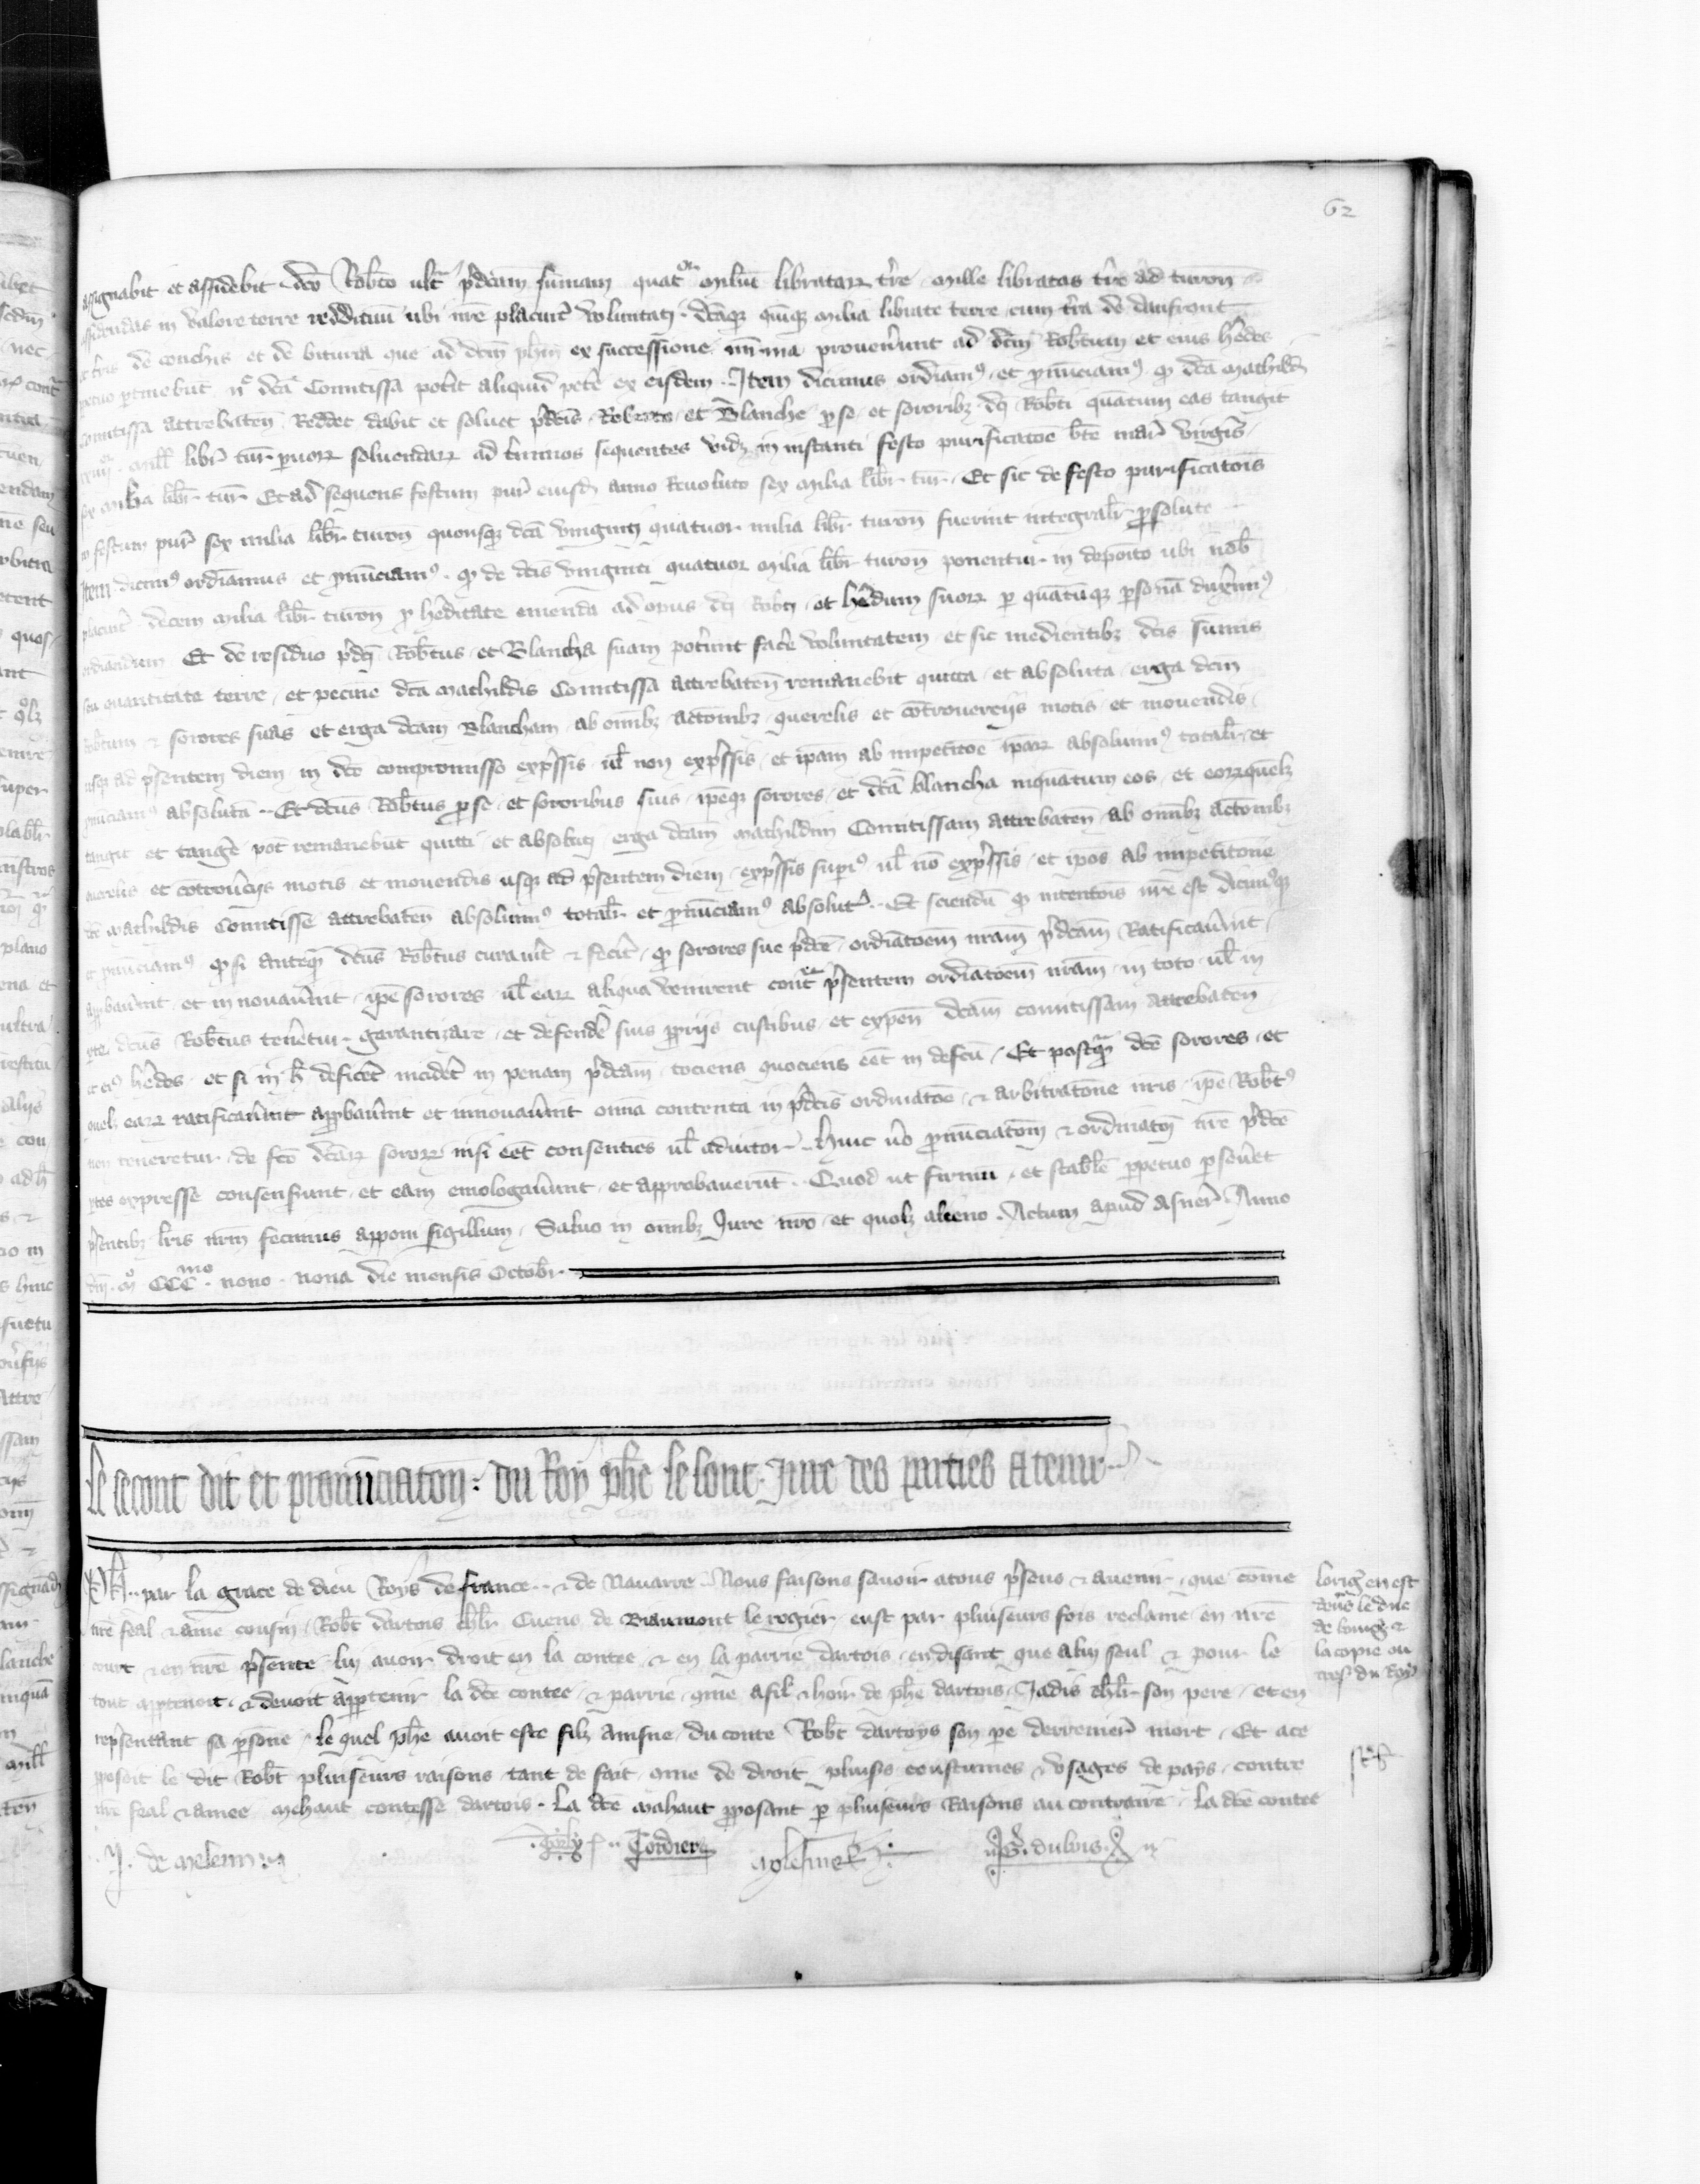 62
assignabit et assidebit dco Robto ultra pdcam summam quatuor miliu libratar tre mille libratas tre ad turon
assidendas in valore terre reddituu ubi nre placuit voluntati dcaqz quinqz milia librate terre cum tra de danfront
et tris de conchis et de bituria que ad dcm phm ex successione mrna provenerunt ad dcm Robtum et eius hedes
ptinebut nec dca Comitissa potit aliquid pete ex eisdem Item dicimus ordinamus et pnunciamus qd dca mathild
Comitissa attrebaten Reddet dabit et solvet pdcis Roberto et Blanche p se et sororibz dci Robti quatum eas tangit
mill libr tur pvor solvendar ad tminos sequentes vidz in instanti festo purificatoe bte mar virgis
sex milia libr tur Et ad sequens festum pur eiusd anno Revoluto sex milia libr tur Et sic de festo purificatois
in festum pur sex milia libr turon quousqz dca vinginti quatuor milia libr turon fuerint integralr psolute
Item dicimus ordinamus et pnunciamus qd de dcis vinginti quatuor milia libr turon ponentur in deposito ubi nob
placuit decem milia libr turon p heditate emenda ad opus dci Robti et hedum suor p quatuqz psona duximus
ordinandum Et de residuo pdci Robtus et Blancha suam potunt face voluntatem et sic medientibz dcis summis
seu quantitate terre et pecune dca mathildis Comitissa attrebaten remanebit quitta et absoluta erga dcm
Robtum & sorores suas et erga dcam Blancham ab omibz actombz querelis et cotroversiis motis et movendis
usqz ad psentem diem in dco compromisso expssis ul non expssis et ipam ab impetitoe ipar absolvimus totalr et
pnunciamus absoluta Et dcus Robtus p se et sororibus suis ipeqz sorores et dca blancha inquatum eos et eorr quelz
tangit et tange pot remanebut quitti et absoluti erga dcam mathildim Comitissam attrebaten ab omibz actombz
querelis et cotroversiis motis et movendis usqz ad psentem diem expssis supius ul no expssis et ipos ab impetitone
dce mathildis Comitisse attrebaten absolvimus totalr et pnunciamus absolutos Et sciendu qd intentois nre est dicimusqz
et pnunciamus qd si anteqm dcus Robtus curaverit & fecerit qd sorores sue pdce ordinatoem nram pdcam Ratificaverint
appbaverint et innovaverint ipe sorores ul ear aliqua venirent contra psentem ordinatoem nram in toto ul in
pte dcus Robtus tenetur garantizare et defende suis ppriis custibus et expen dcam comitissam Attrebaten
et eius hedes et si in h deficet incidet in penam pdcam tociens quociens eet in defcu Et postqm dce sorores et
quelz ear ratificaverint appbaverint et innovaverint omia contenta in pdcis ordinatoe & arbitratione nris ipe Robtus
non teneretur de fco dcar soror nisi eet consenties ul adiutor Huic vo pnunciatom & ordinatoi nre pdce
ptes expresse consenserunt et eam emologaverunt et approbaverut Quod ut firmu et stabile ppetuo pseveret
psentibz lris nrm fecimus apponi sigillum Salvo in omibz Jure nro et quolz alieno Actum apud Asner Anno
dni mo CCCmo nono nona die mensis Octobr
Le secont dit et pronunciaton du Roy phe le lonc Jure des parties A tenir
Ph par la grace de dieu Roys de france & de Navarre Nous faisons savoir a tous psens & avenir que come
nre feal & ame cousin Robt dartois chlr Cuens de Biaumont le rogier eust par pluiseurs fois reclame en nre
court & en nre psente lui avoir droit en la contee & en la parrie dartois en disant que a lui seul & pour le
tout apptenoit & devoit apptenir la dce contee & parrie cme a fil & hoir de phe dartois Jadis chlr son pere et en
repsentant sa psone le quel phe avoit este filz ainsne du conte Robt dartoys son pe derrenier mort Et ace
pposoit le dit Robt pluiseurs raisons tant de fait cme de droit pluisrs coustumes & usages de pays contre
nre feal & amee mehaut contesse dartois La dce mahaut pposant p pluiseurs Raisons au contraire La dce contee
lorig en est
devs le duc
de bourg &
la copie ou
tres du Roy
J. de melenn
Cordier
dubuis